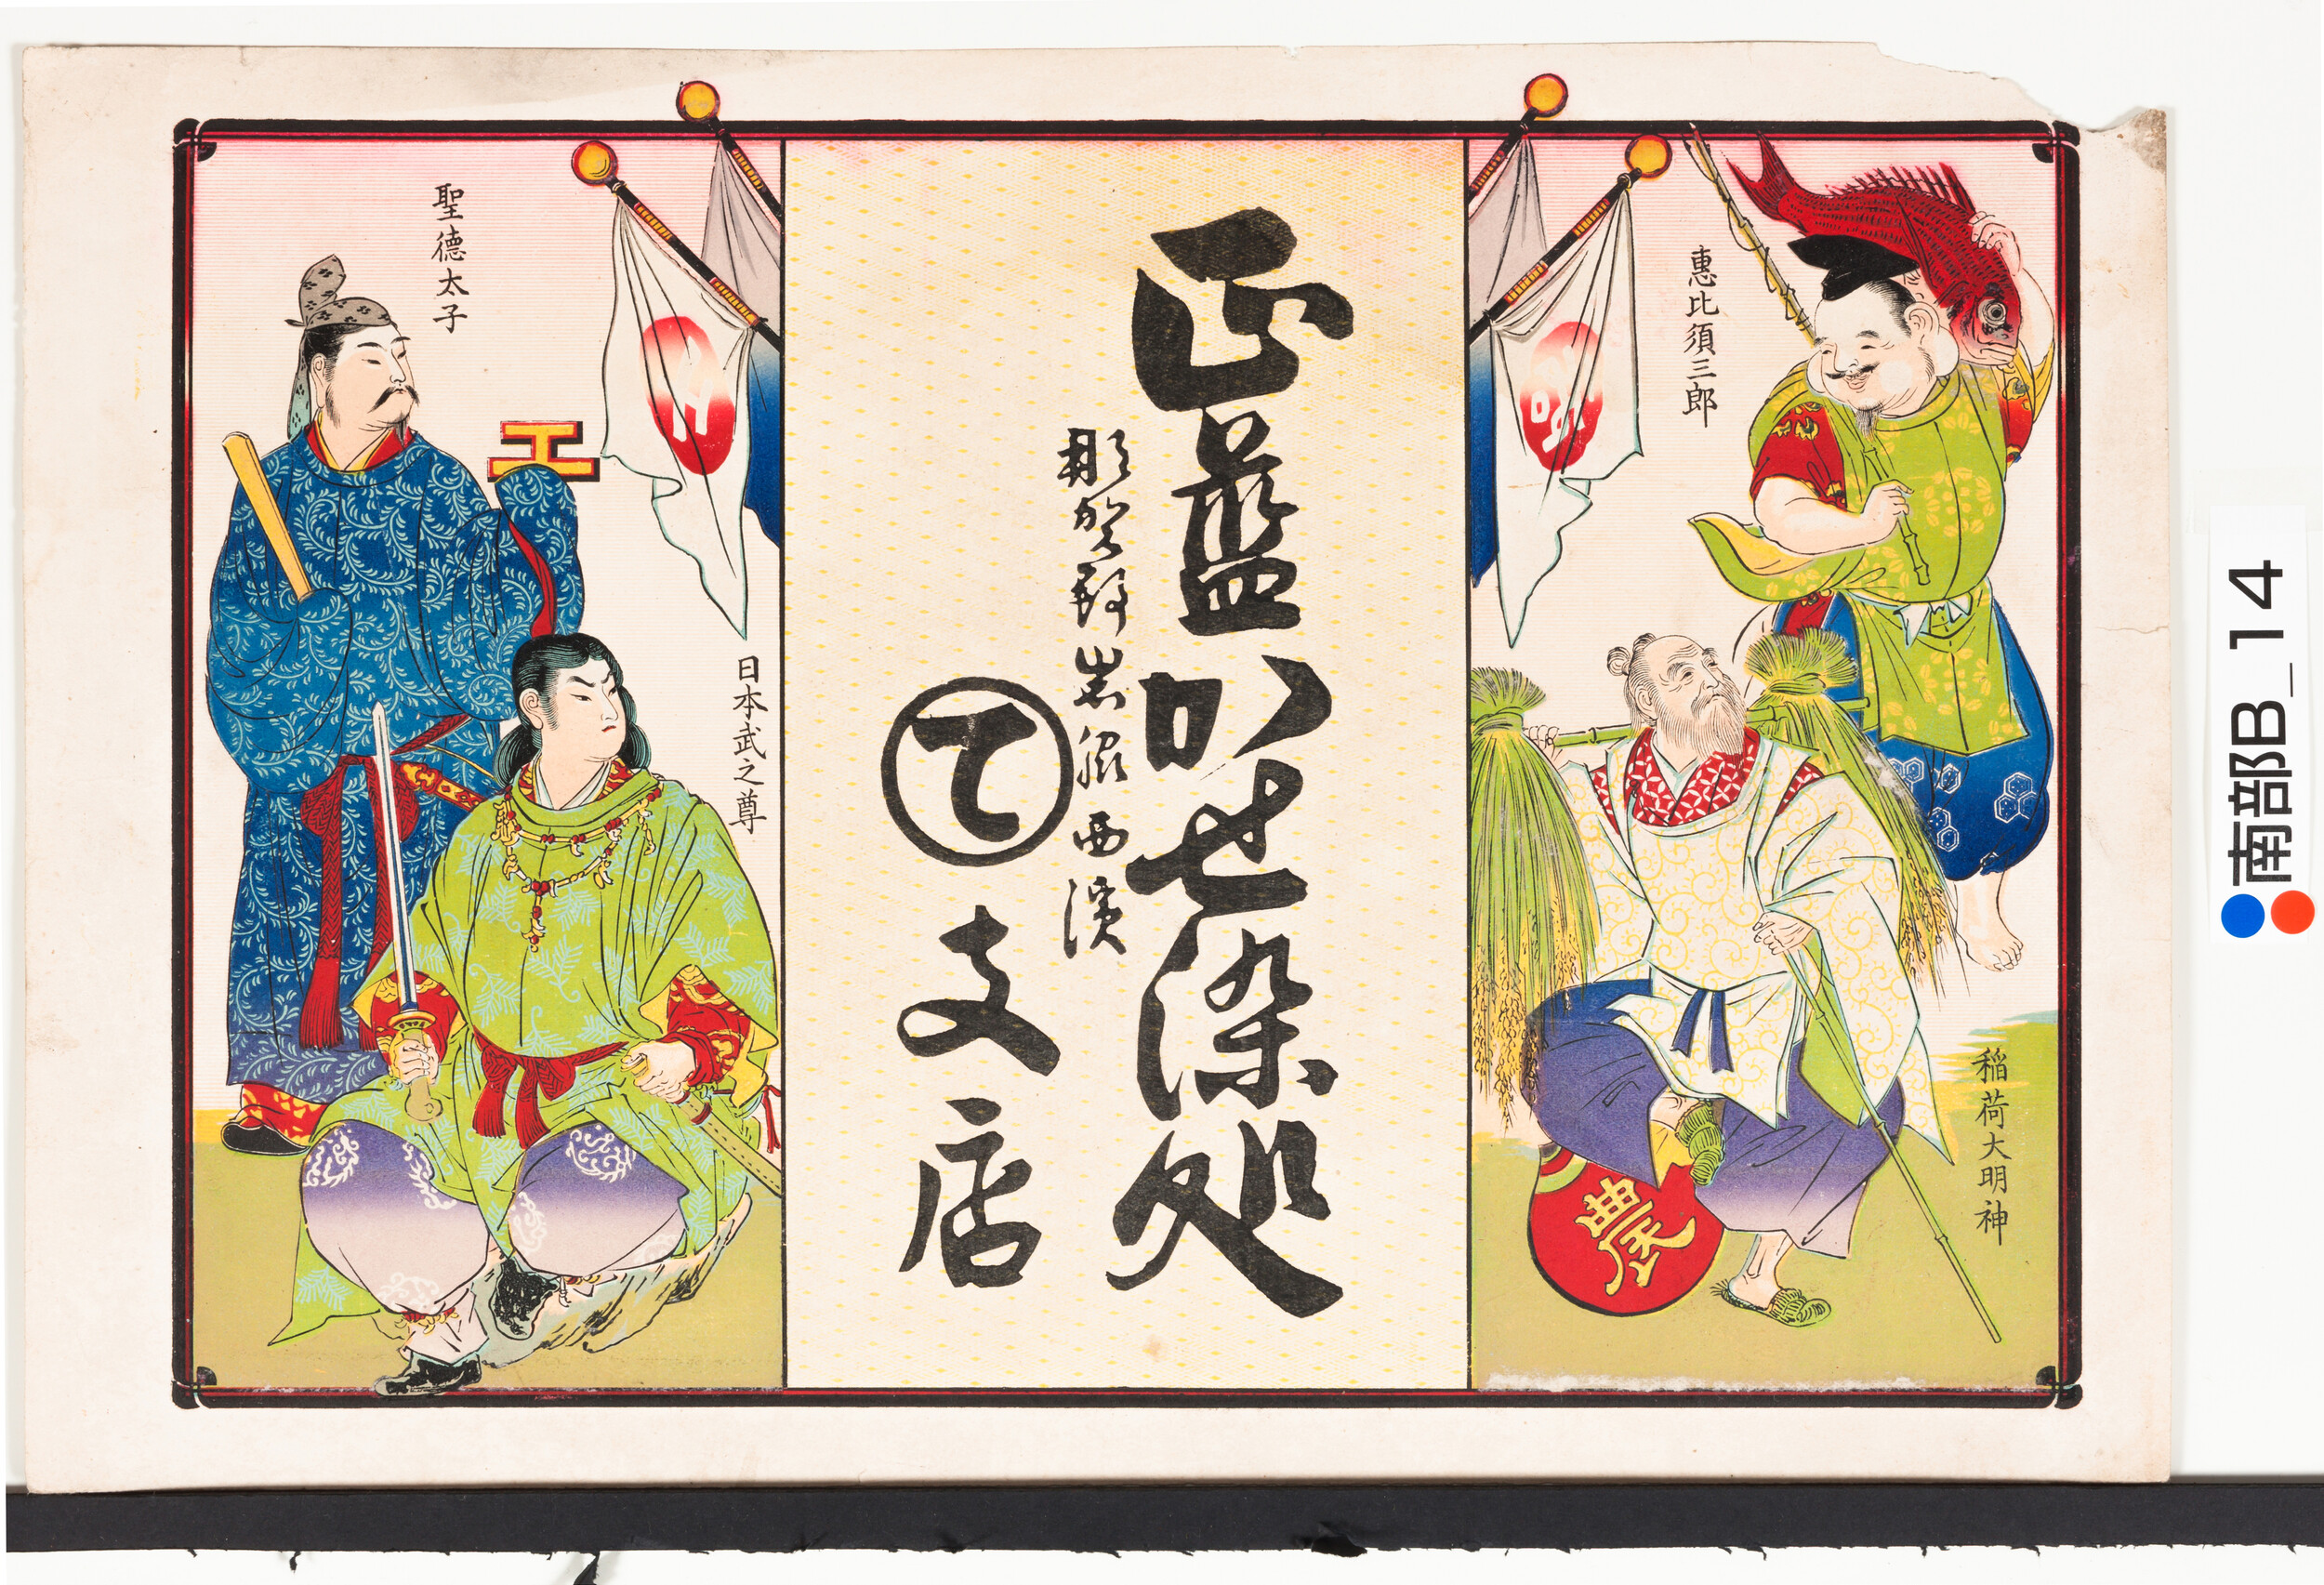 惠比須三郎
稲荷大明神
農
正藍かせ染処
那賀郡岩脇西濱
て支店
日本武之尊
工
聖徳太子
南部B_14